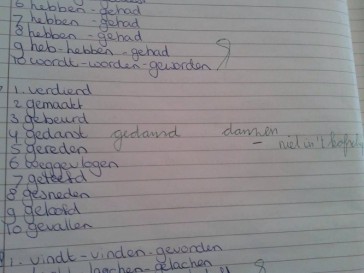 6 hebben - gehad
7 hebben - gehad
8 hebben - gehad
9 heb - hebben - gehad
10. wordt - worden - geworden
1. verdiend
2 gemaakt
3 gebeurd
4 gedanst gedansd dansen - niet in 't
5 gereden
6 weggevlogen
7 geteeld
8 gesneden
9 geloofd
10. gevallen
1. vindt - vinden - gevonden
lachen - gelachen